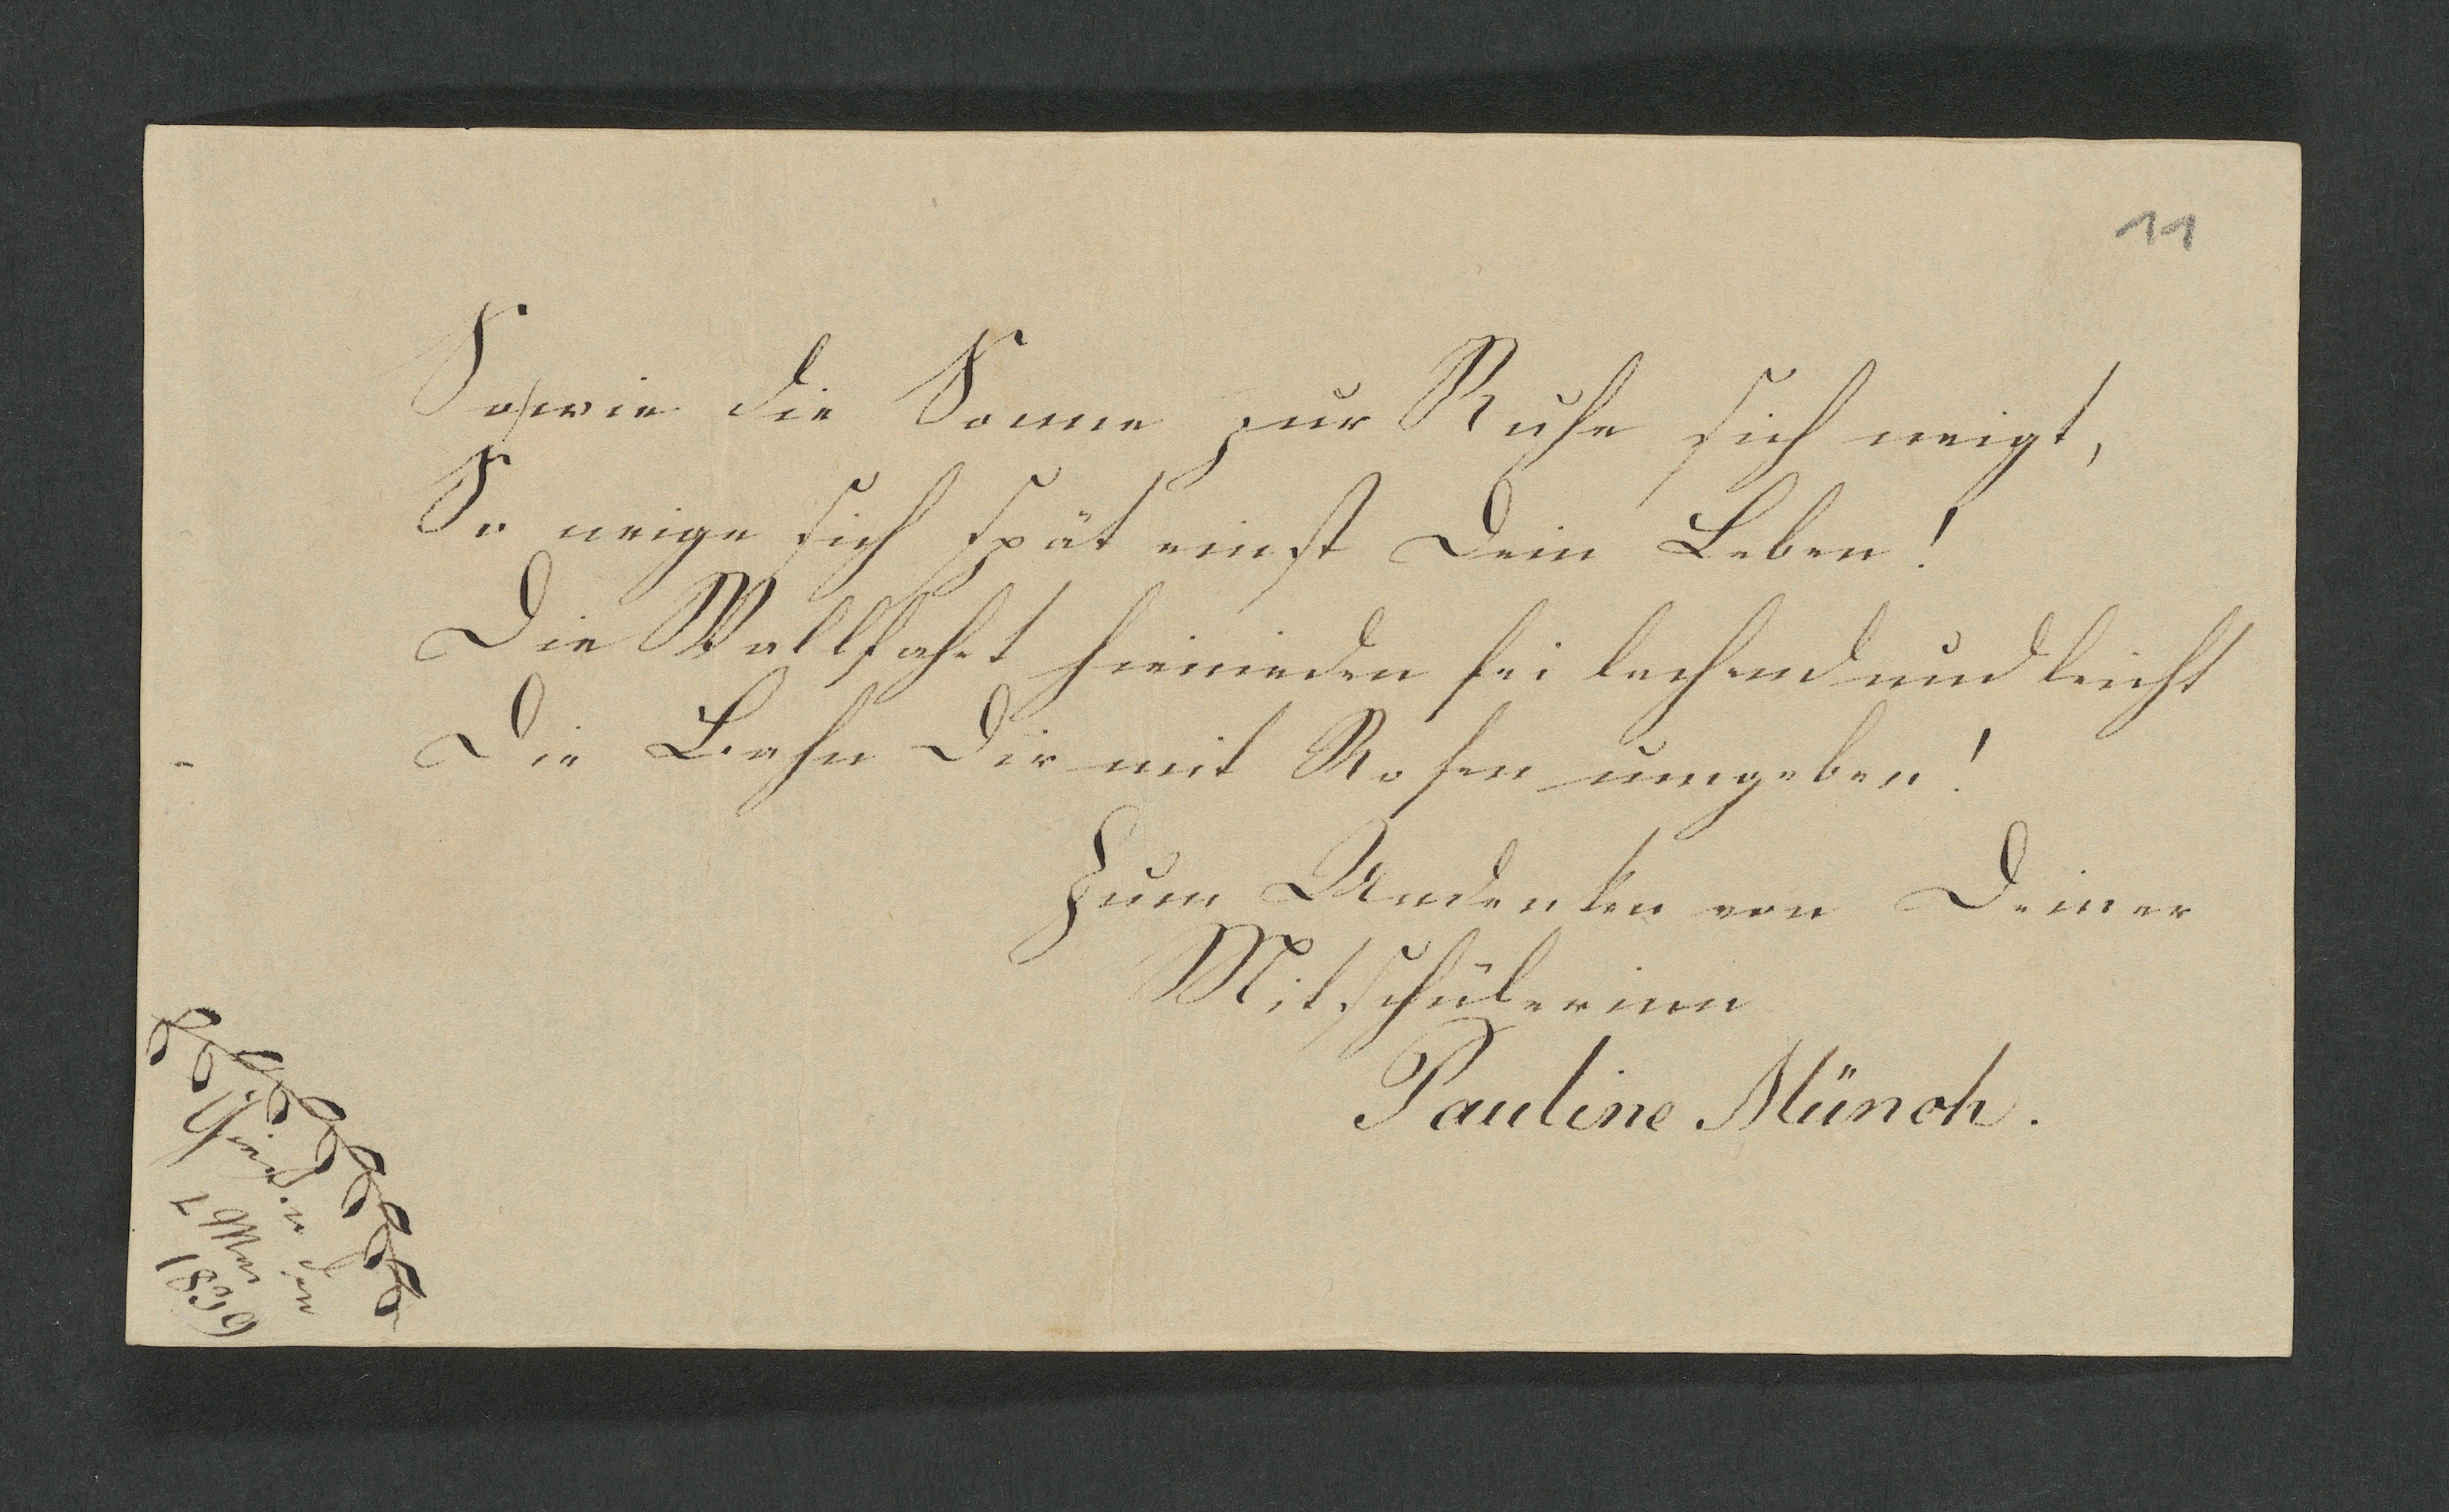 11
Sowie die Sonne zur Ruhe sich neigt,
So neige sich spät einst Dein Leben!
Die Wallfahrt hienieden sei lachend und leicht
Die Bahn Dir mit Rosen umgeben!
Zum Andenken von Deiner
Mitschülerinn
Pauline Münch.
den
1839